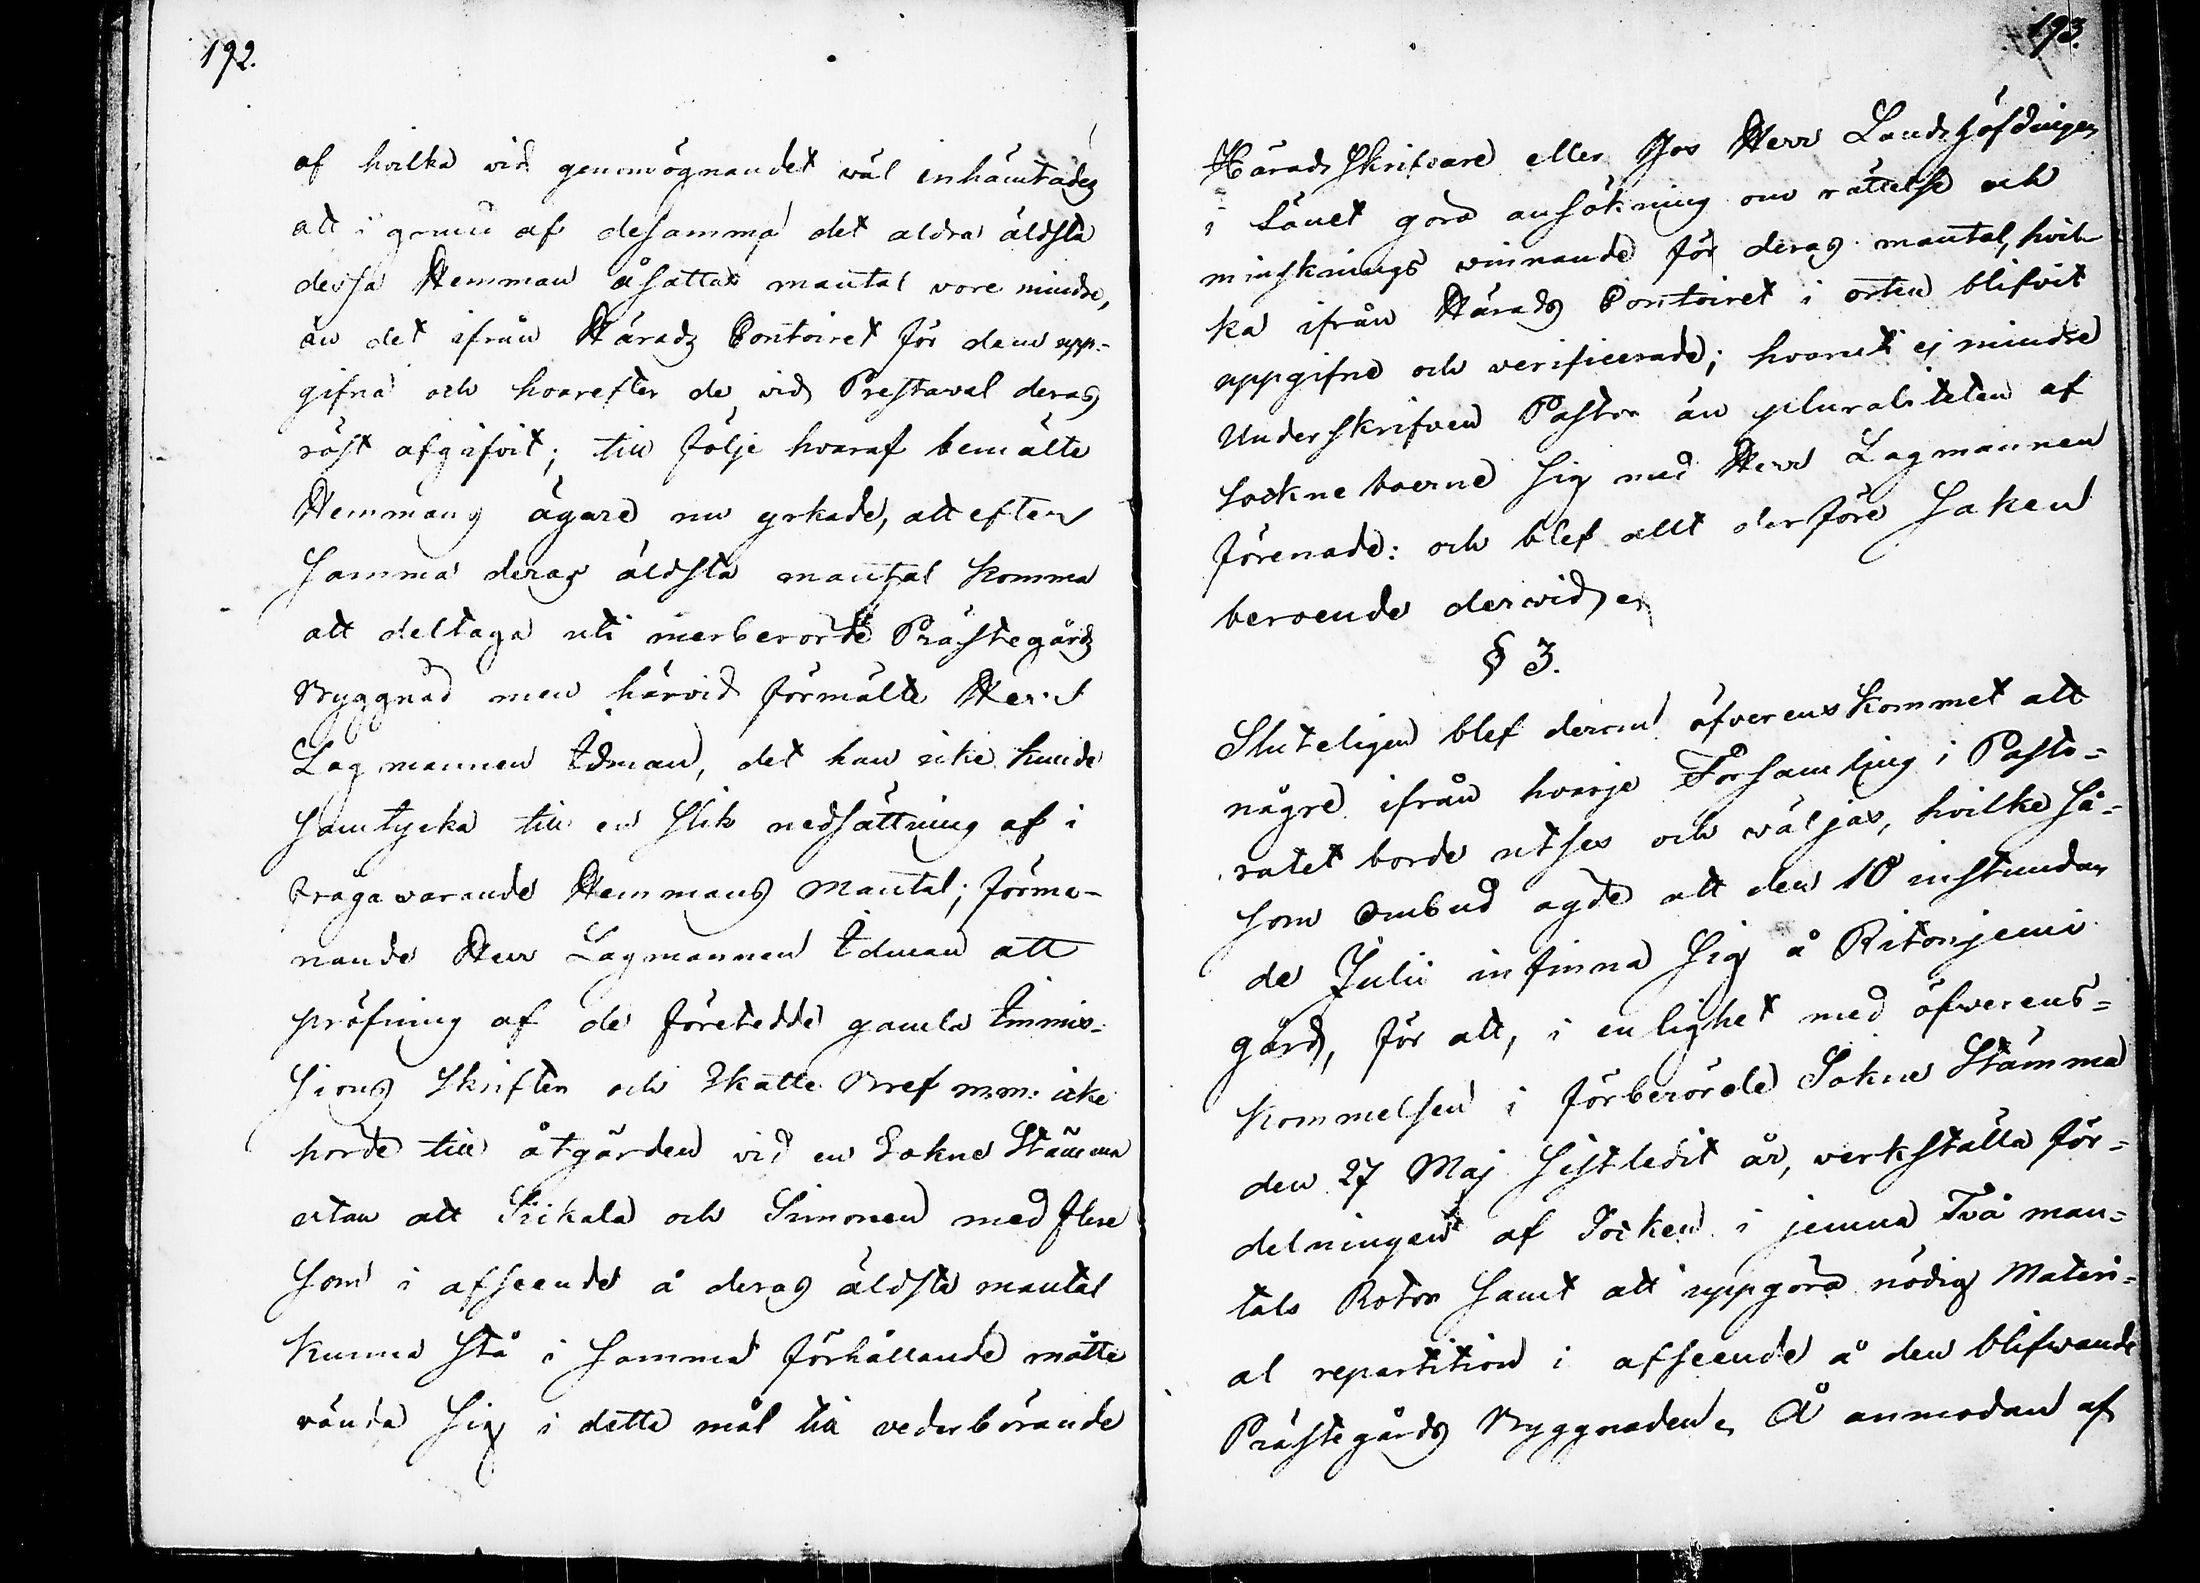 192.
af hvilka vid genomögnandet väl inhämtades
att i grund af desamma det aldra äldsta
dessa Hemman åsatta mantal vore mindre,
än det ifrån Härads Contoiret för dem upp-
gifna och hvarefter de vid Prestaval deras
röst afgifvit; till följe hvaraf bemälte
Hemmans ägare nu yrkade, att efter
samma deras äldsta mantal komma
att deltaga uti merberörte Prästegårds
Byggnad men härvid förmälte Herr
Lagmannen Idman, det han icke kunde
samtycka till en slik nedsättning af i
fråga varande Hemmans mantal; förme-
nande Herr Lagmannen Idman att
pröfning af de företedde gamla Immis-
sions Skrifter och Skatte Bref m.m. icke
horde till åtgärden vid en Sokne Stämma
utan att Siukala och Simonen med flere
som i afseende å deras äldsta mantal
kunna stå i samma förhållande måtte
vända sig i detta mål till vederbörande
193.
Häradsskrifvare eller hos Herr Landshöfdingen
i Länet göra ansökning om rättelse och
minsknings vinnande för deras mantal, hvil-
ka ifrån Härads Contoiret i orten blifvit
uppgifne och verificerade; hvaruti ej mindre
Underskrifven Pastor än pluraliteten af
Sockneboerne sig med Herr Lagmannen
förenade: och blef allt derföre saken
beroende dervid,
§ 3.
Sluteligen blef derom öfverenskommet att
någre ifrån hvarje Församling i Pasto-
ratet borde utses och väljas, hvilke så-
som ombud ägde att den 10 instundan
de Julii infinna sig å Ritoniemi
gård, för att, i enlighet med öfverens-
kommelsen i förberörde Sokne Stämma
den 27 Maj sistledit år, verkställa för-
delningen af Socken i jemna Två man-
tals Rotor samt att uppgöra nödig Materi-
al repartition i afseende å den blifvande
Prästegårds Byggnaden. Å anmodan af